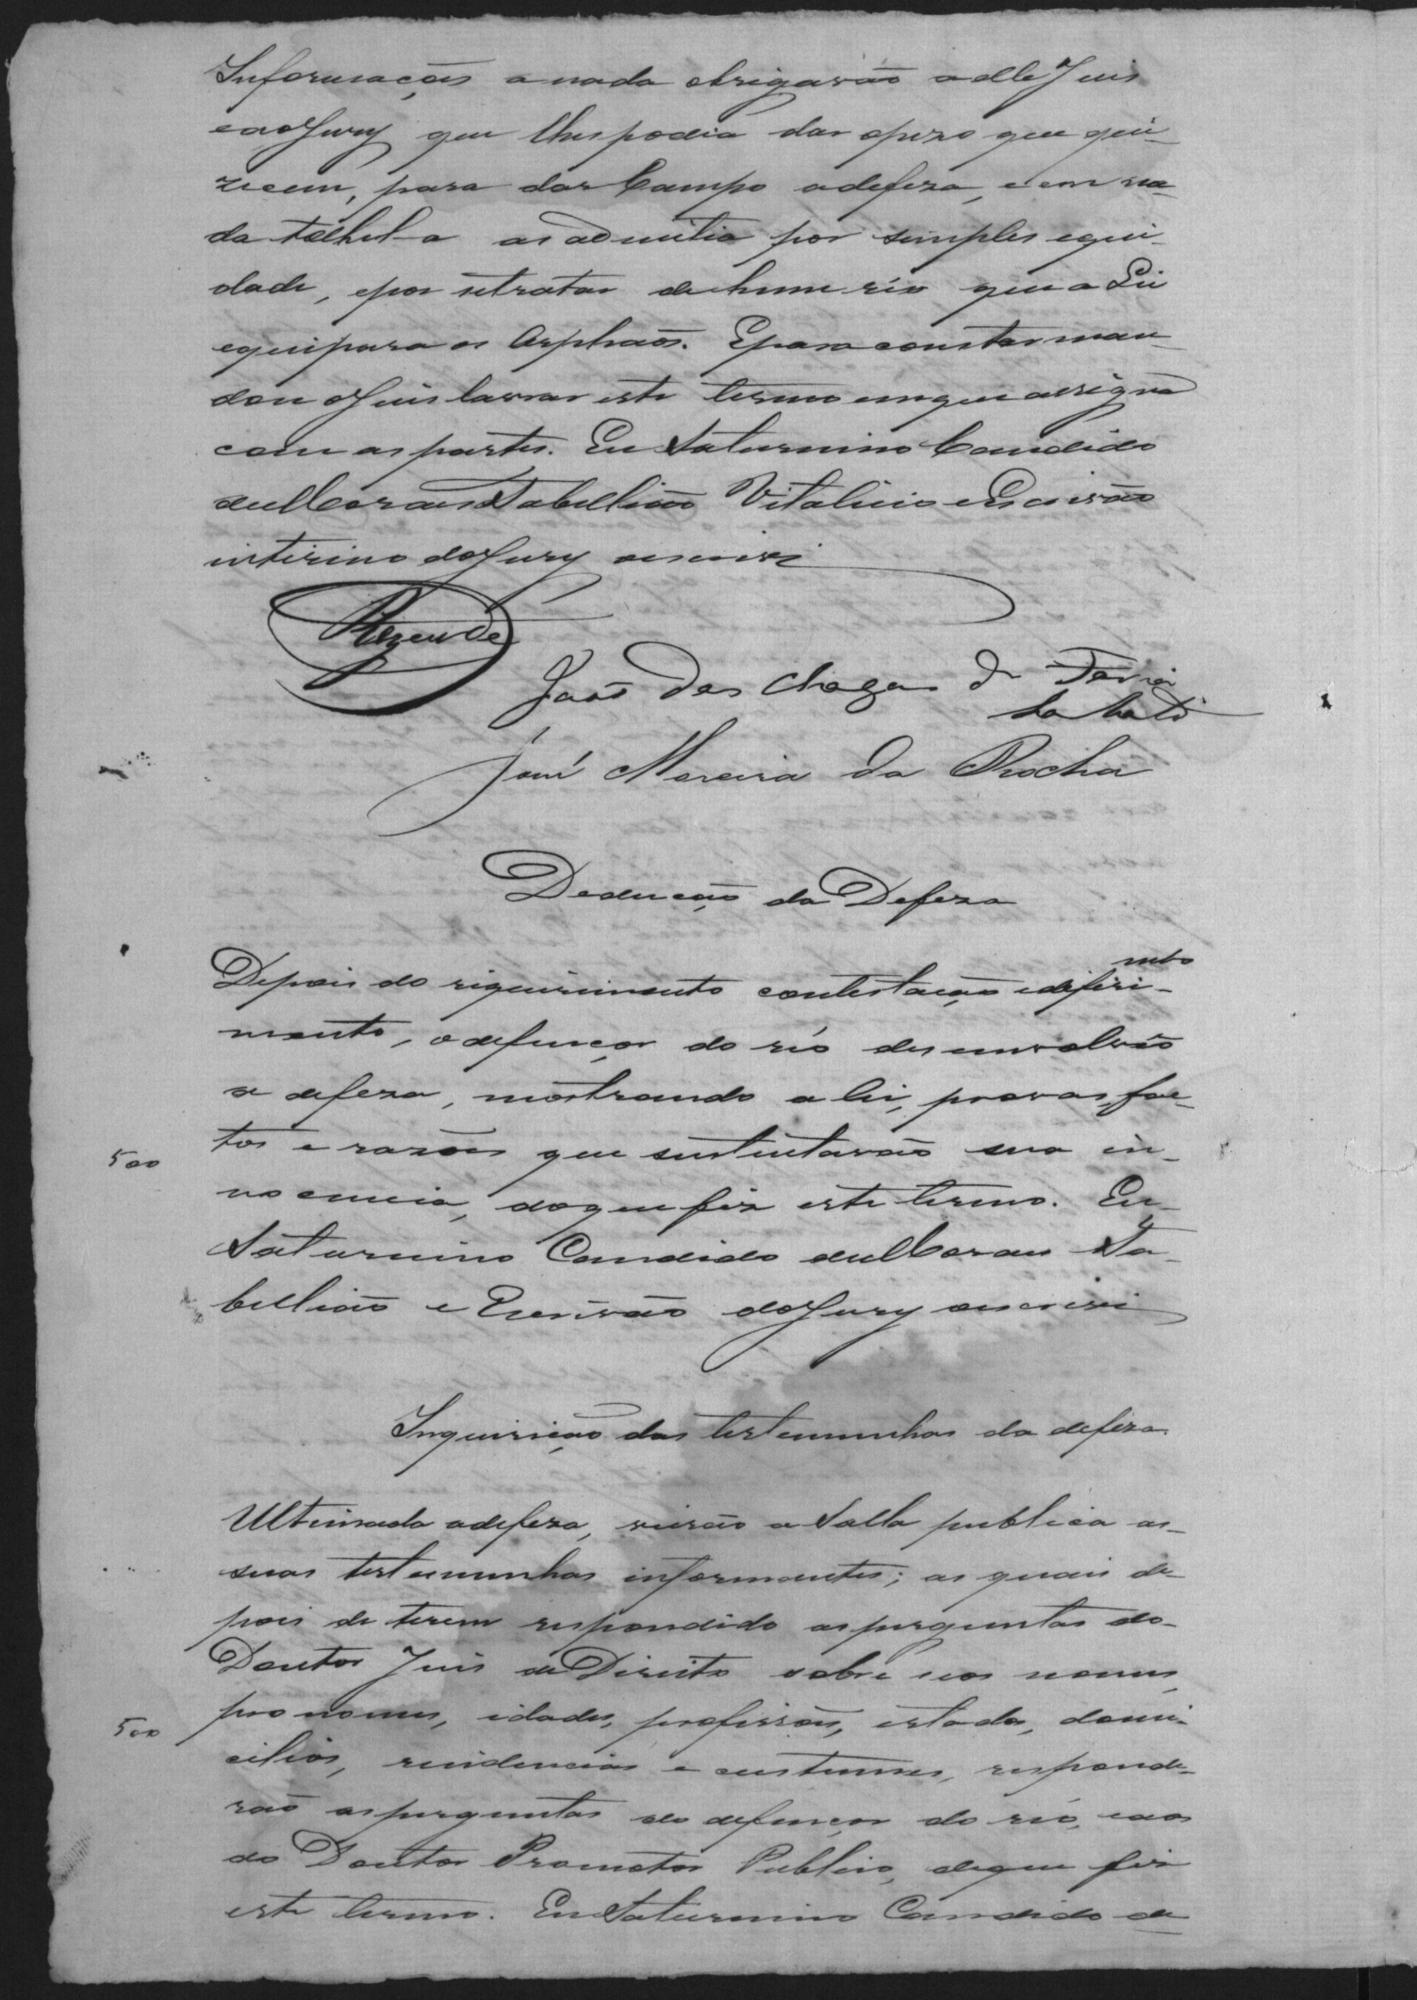 Informações a nada obrigavão a elle Juis
e ao Jury que lhes podia dar o pezo que qui-
zecem, para dar Campo a defeza, e em na-
da tolhel-a as admitia por simples equi-
dade, e por se tratar de hum réo que a Lei
equipara os Orphaõs. E para constar man-
dou o Juis lavrar este termo em que assigna
com as partes. Eu Saturnino Candido
de Moraes Tabellião Vitalicio e Escrivão
interino do Jury o escrivi
Rezende
João das Chagas de Faria
Lobato
José Moreira da Rocha
Deducção da Defeza
Depois do riquirimento contestação e difiri-
mento
mento, o defençor do réo desenvolveo
a defeza, mostrando a lei, provas, fac-
tos e razões que sustentavão sua in-
500
nocencia, do que fiz este termo. Eu
Saturnino Candido de Moraes Ta-
bellião e Escrivão do Jury o escrivi
Inquirição das testemunhas da defeza
Ultimada a defeza, vierão a Salla publica as
suas testemunhas informantes; as quais de-
pois de terem respondido as perguntas do
Doutor Juis de Direito sobre seos nomes,
pronomes, idades, profissões, estados, domi-
500
cilios, residencias e custumes, responde-
rão as perguntas do defençor do réo, e as
do Doutor Promotor Publico, de que fiz
este termo. Eu Saturnino Candido de